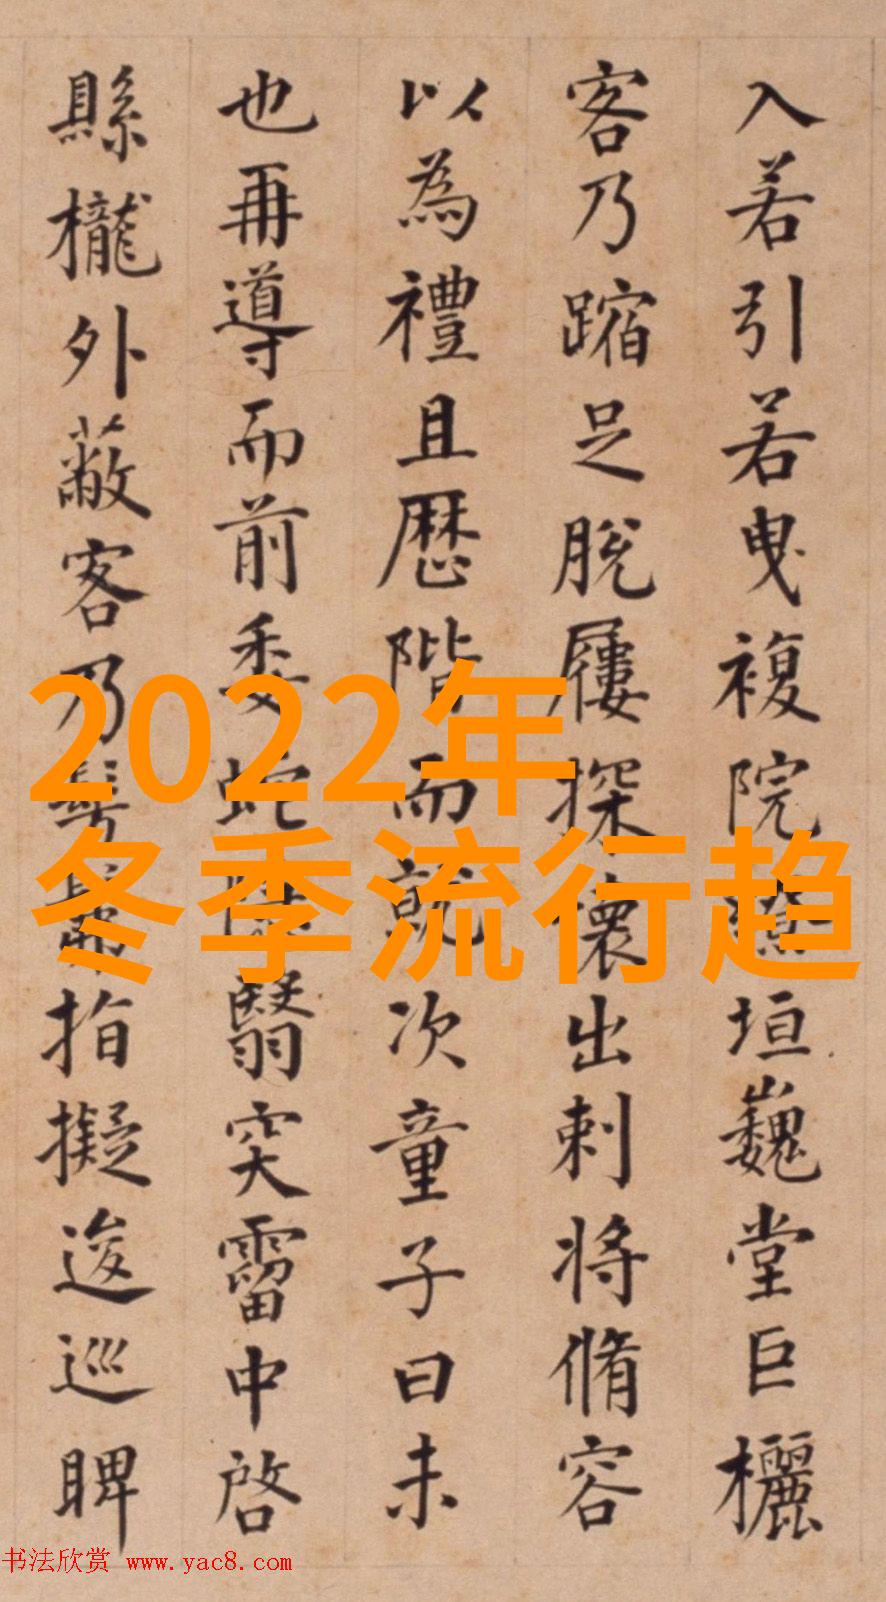 入若引若曳複院繚垣巍堂巨欐
客乃蹜足脫屨探懷出刺將脩容
以為禮且歷階而就次童子曰未
也再導而前委蛇翳突霤中啓
縣櫳外蔽客乃髣髴指擬逡巡睥
2022年
冬季流行趋
书法欣赏 www.yac8.com